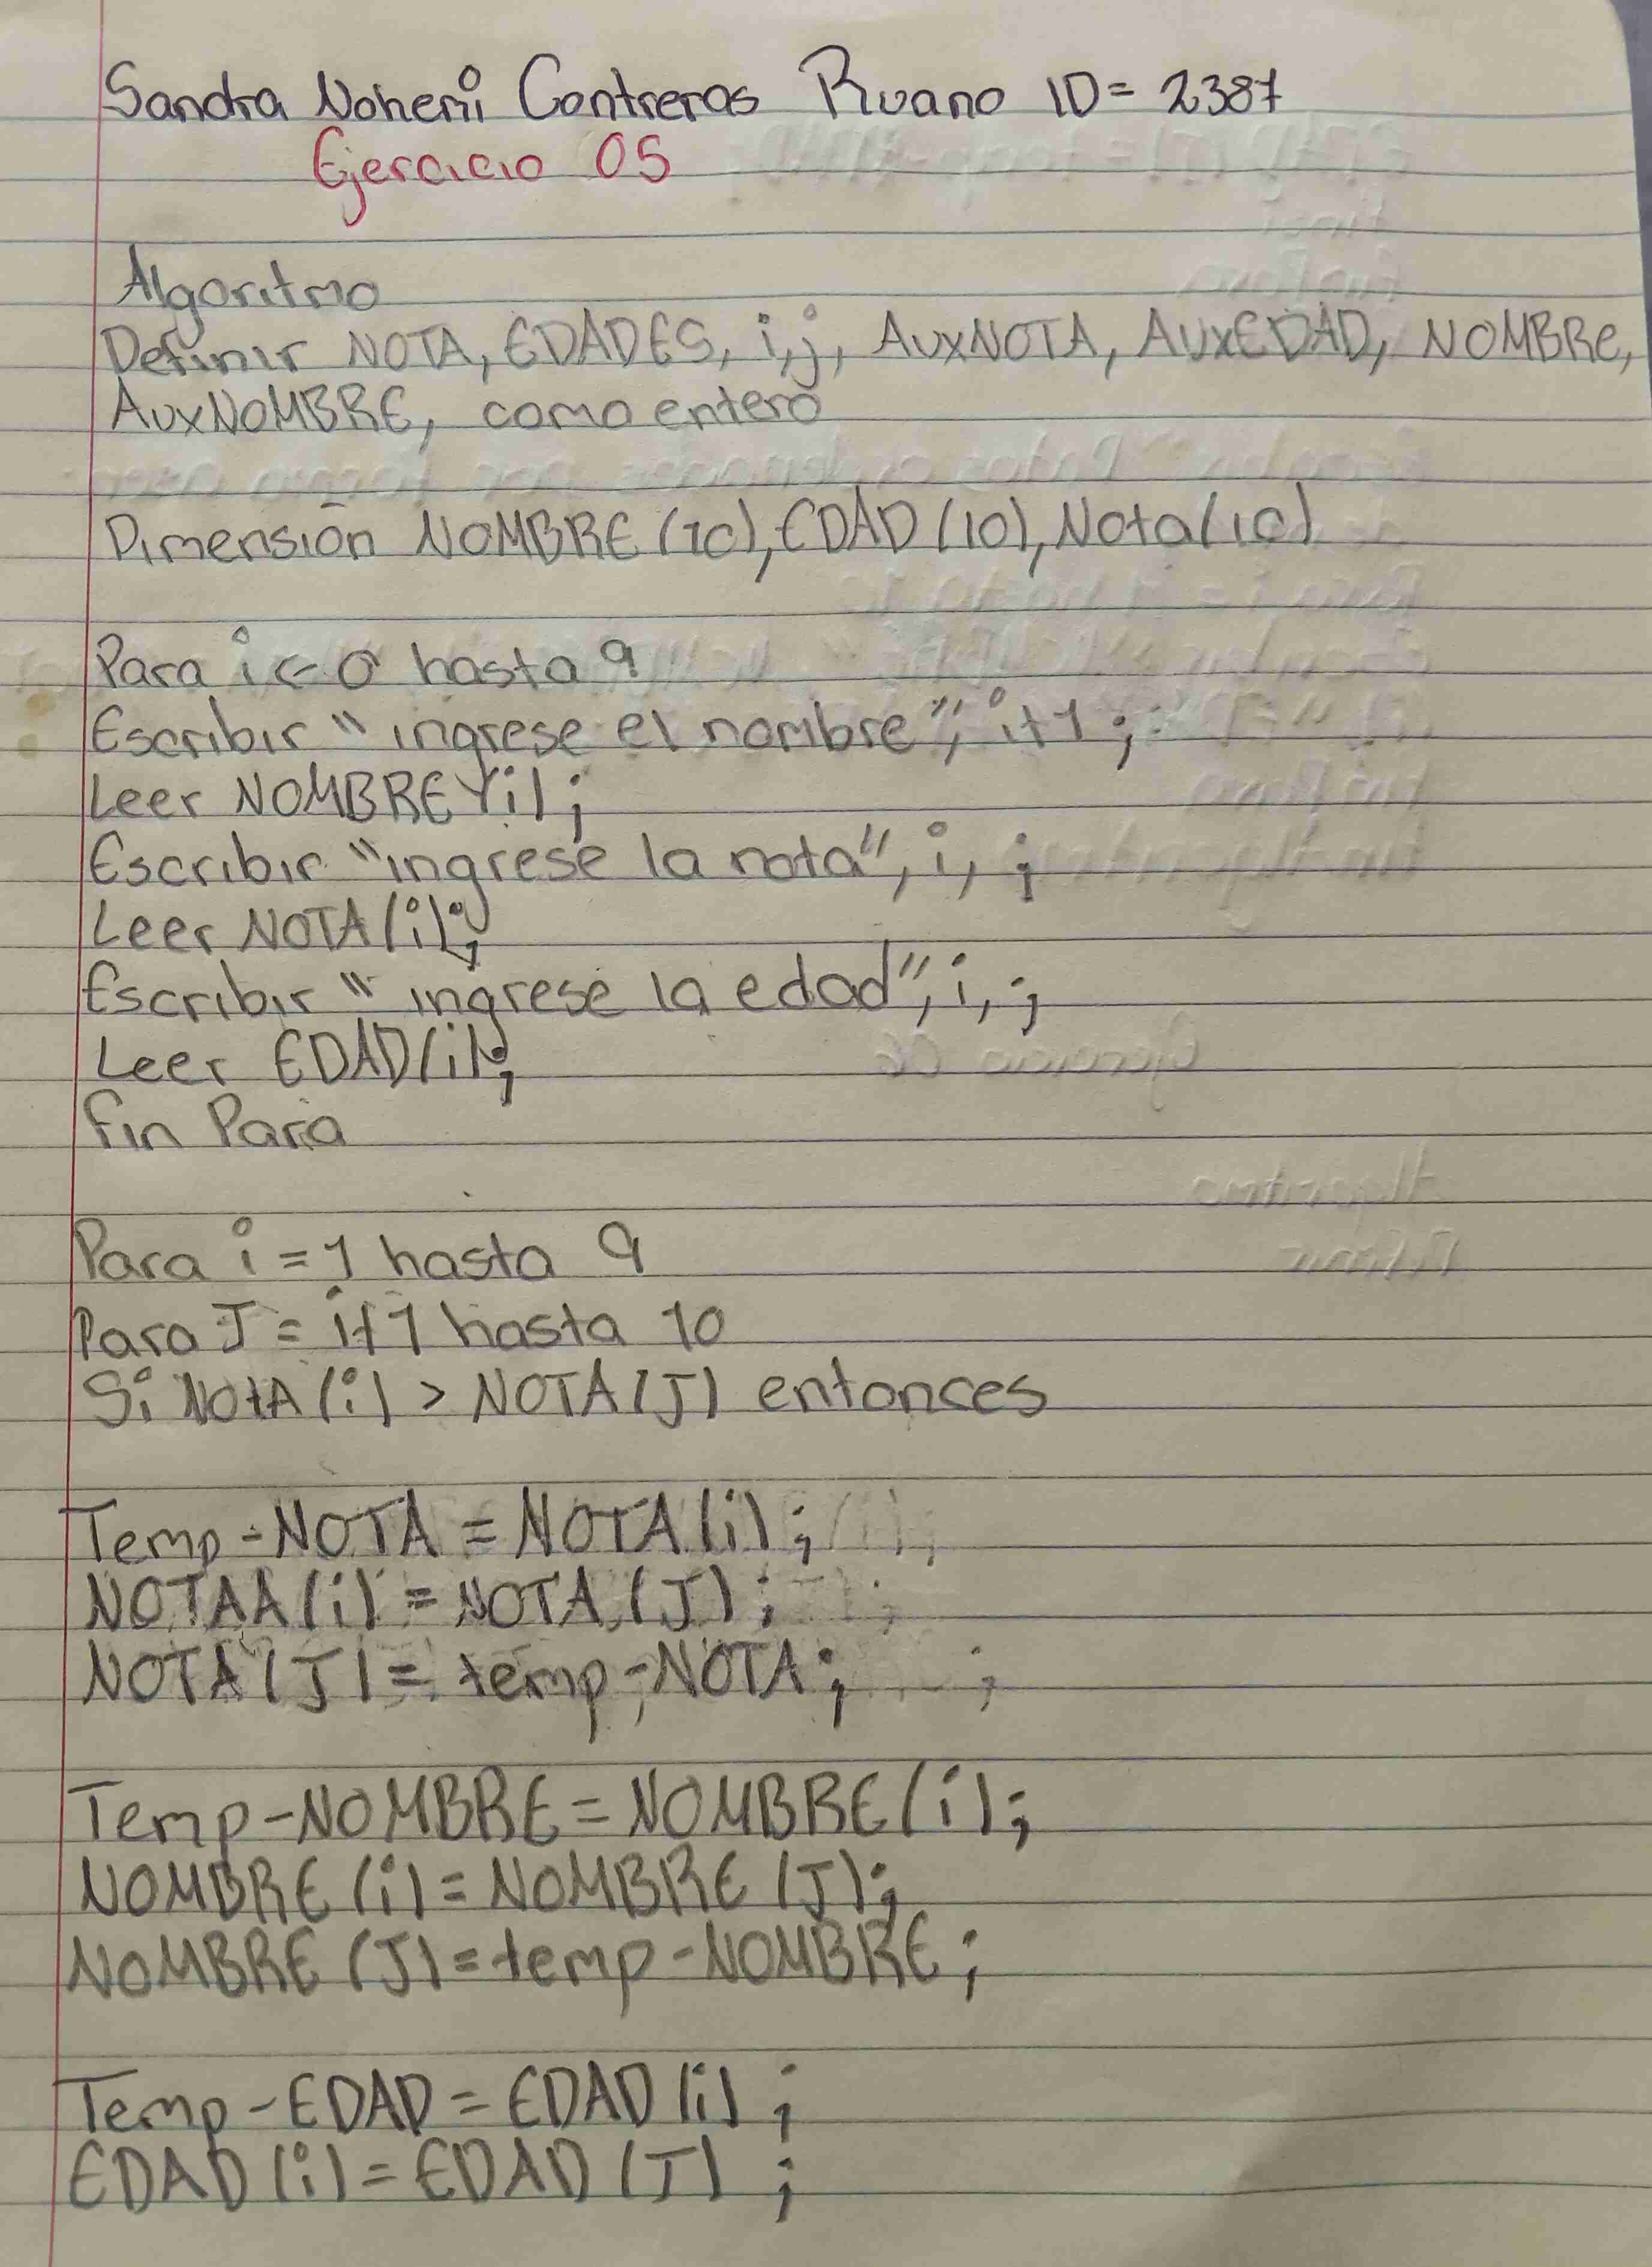 Sandra Nohemi Contreras Ruano ID= 2387
Ejercicio 05
Algoritmo
Definir NOTA, EDADES, i,j, AuxNOTA, AUxEDAD, NOMBRe,
AuxNOMBRE, como entero
Dimensión NOMBRE (10), EDAD (10), Nota(10)
Para i <- 0 hasta 9
Escribir "ingrese el nombre", i+1;
Leer NOMBRE (i);
Escribir "ingrese la nota", i, ;
Leer NOTA(i);
Escribir "ingrese la edad", i, ;
Leer EDAD(i);
fin Para
Para i = 1 hasta 9
Para J = i+1 hasta 10
Si NOtA(i) > NOTA(J) entonces
Temp-NOTA = NOTA(i);
NOTAA(i) = NOTA (J);
NOTA(J) = temp-NOTA;
Temp-NOMBRE = NOMBRE(i);
NOMBRE (i) = NOMBRE (J);
NOMBRE (J) = temp-NOMBRE;
Temp-EDAD = EDAD (i) ;
EDAD (i) = EDAD (J) ;